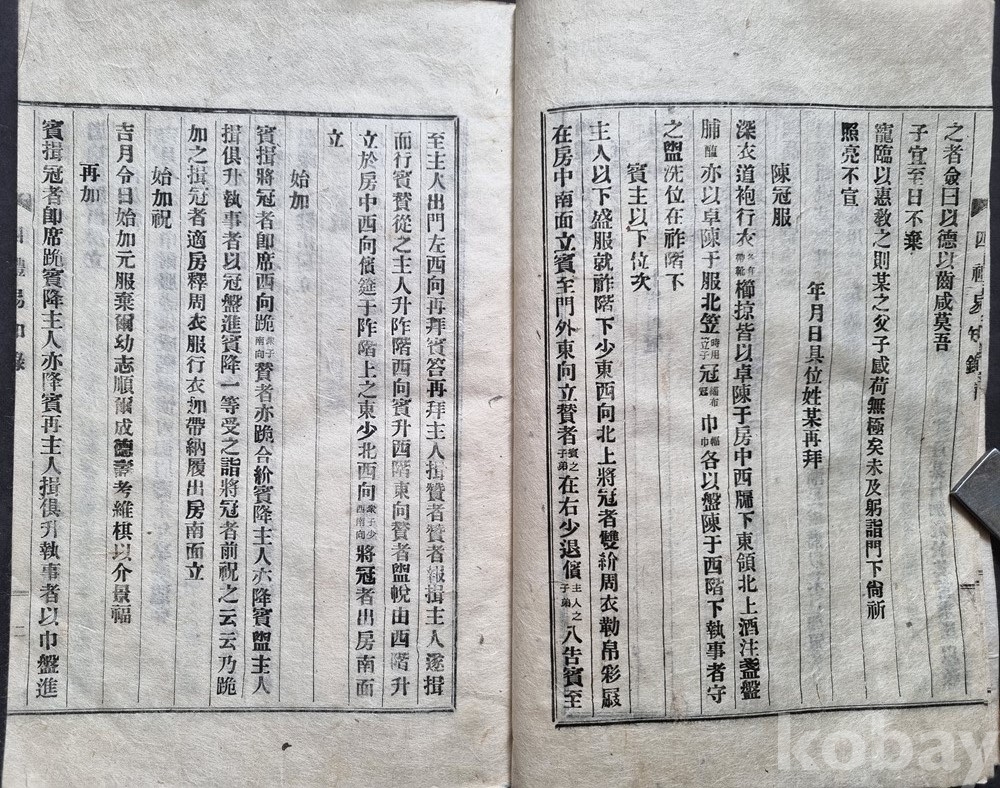 之者僉曰以德以齒咸莫吾
子宜至日不棄
寵臨以惠教之則某之父子感荷無極矣未及躬詣門下尙祈
照亮不宣
年月日具位姓某再拜
陳冠服
深衣道袍行衣各有帶靴櫛掠皆以卓陳于房中西牖下東領北上酒注盞盤
脯醢亦以卓陳于服北笠時用立子冠緇布冠巾幅巾各以盤陳于西階下執事者守
之盥洗位在祚階下
賓主以下位次
主人以下盛服就祚階下少東西向北上將冠者雙紒周衣勒帛彩屐
在房中南面立賓至門外東向立賛者賓之子弟在右少退儐主人之子弟入告賓至
四禮易知錄
至主人出門左西向再拜賓答再拜主人揖賛者賛者報揖主人遂揖
而行賓賛從之主人升阼階西向賓升西階東向賛者盥帨由西階升
立於房中西向儐筵于阼階上之東少北西向衆子少西南向將冠者出房南面
立
始加
賓揖將冠者卽席西向跪衆子南向賛者亦跪合紒賓降主人亦降賓盥主人
揖俱升執事者以冠盤進賓降一等受之詣將冠者前祝之云云乃跪
加之揖冠者適房釋周衣服行衣加帶納履出房南面立
始加祝
吉月令日始加元服棄爾幼志順爾成德壽考維棋以介景福
再加
賓揖冠者卽席跪賓降主人亦降賓再主人揖俱升執事者以巾盤進
四禮易知錄
二
kobay